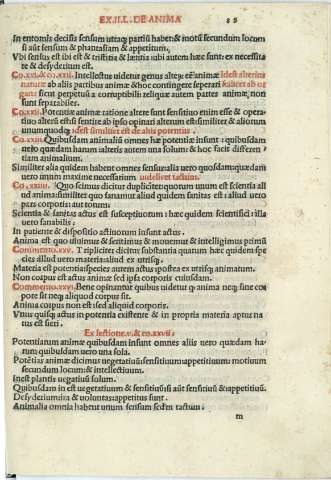 EX.II.L. DE ANIMA 89
In entomis decisis sensum utraq; partiũ habet:& motũ secundum locum
si aũt sensum & phantasiam & appetitum.
Vbi sensus est ibi est & tristitia & lætitia ubi autem hæc sunt: ex necessita
te & desyderium est.
Co.xxi.& co.xxii. Intellectus uidetur genus alteꝝ eē animæ idest alterius
naturæ ab aliis partibus animæ:& hoc contingere seperari idest alter ab or
gano: sicut perpetuũ a corruptibili: reliquæ autem partes animæ, non
sunt separabiles.
Co.xxii. Potentiæ animæ ratione alteræ sunt sensitiuo enim esse & opera-
tiuo alterũ est si sentire ab ipso opinari alterum est similiter & aliorum
unumquodq; idest similiter est de aliis potentiis.
Co.xxiii. Quibusdam animalium omnes hæ potentiæ insunt: quibusdam
uero quædam harum alteris autem una solum: & hoc facit differen-
tiam animalium.
Similiter alia quidem habent omnes sensus: alia uero quosdam: quædam
uero unum maxime necessarium uidelicet tactum.
Co.xxiiii. Quo scimus dicitur dupliciter: quorum unum est scientia ali
ud anima: similiter quo sanamur aliud quidem sanitas est: aliud uero
pars corporis: aut totum.
Scientia & sanitas actus est susceptiuorum: hæc quidem scientifici: illa
uero sanabilis.
In patiente & dispositio actiuorum insunt actus.
Anima est quo uiuimus & sentimus & mouemur & intelligimus primũ
Commento.xxv. Tripliciter dicitur substantia quarum hæc quidem spe
cies: illud uero materia: aliud ex utrisq;.
Materia est potentia: species autem actus: apostea ex utrisq; animatum.
Non corpus est actus animæ sed ipsa corporis cuiusdam.
Commento.xxvi. Bene opinantur quibus uidetur q̄ anima neq; sine cor
pore sit neq; aliquod corpus sit.
Anima corpus non est sed aliquid corporis.
Vnius quisq; actus in potentia existente & in propria materia aptus na
tus est fieri.
Ex lectione.v. & co.xxvii.
Potentiarum animæ quibusdam insunt omnes aliis uero quædam ha-
rum quibusdam uero una sola.
Potētias animæ dicimus uegetatiuũ: sensitiuum: appetitiuum: motiuum
secundum locum: & intellectiuum.
Inest plantis uegatiuũ solum.
Quibusdam in est uegetatiuum & sensitiuũ: si aũt sensitiuũ & appetitiuũ.
Desyderium: ira & uoluntas: appetitus sunt.
Animalia omnia habent unum sensum sed‛m tactum.
m